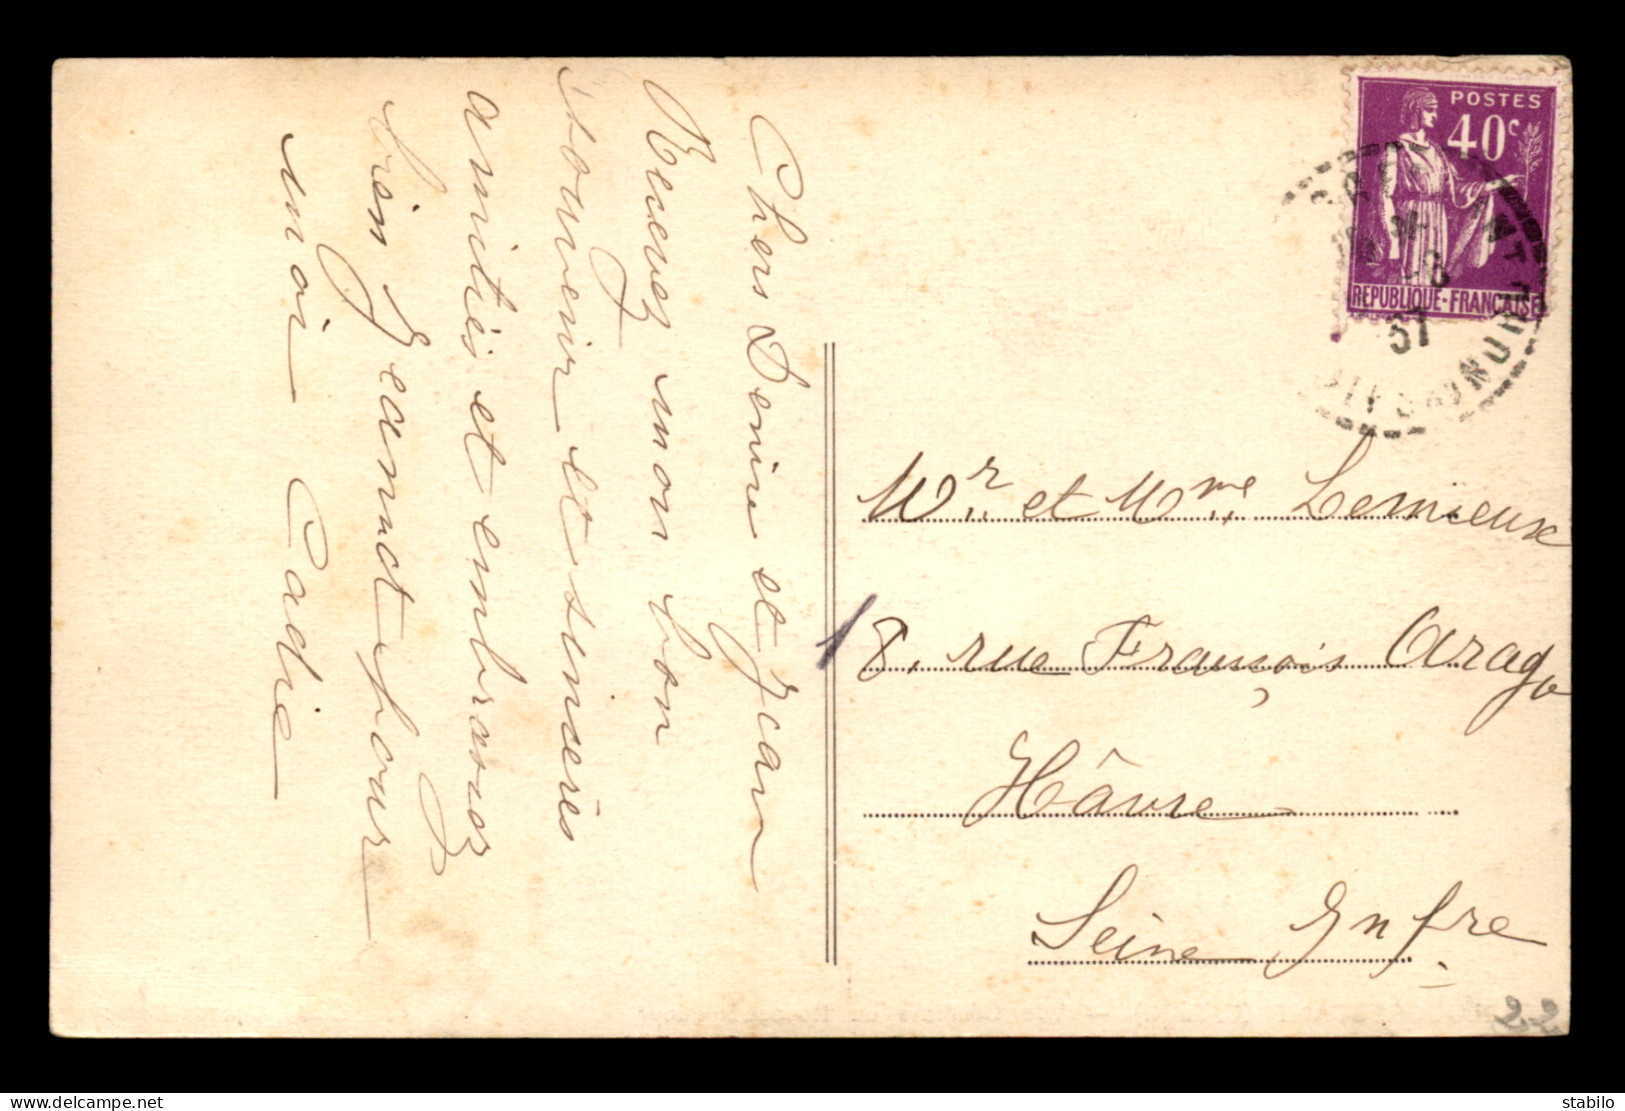 Chers Denise et Jean
Recevez mon bon
souvenir et sincères
amitiés et embrassez
bien Jeannot pour
moi Cadie
POSTES
40c
REPUBLIQUE-FRANÇAISE
-8
37
Mr. et Mme Lemieux
18, rue François Arago
Hâvre
Seine Infre
22
delcampe.net
stabilo